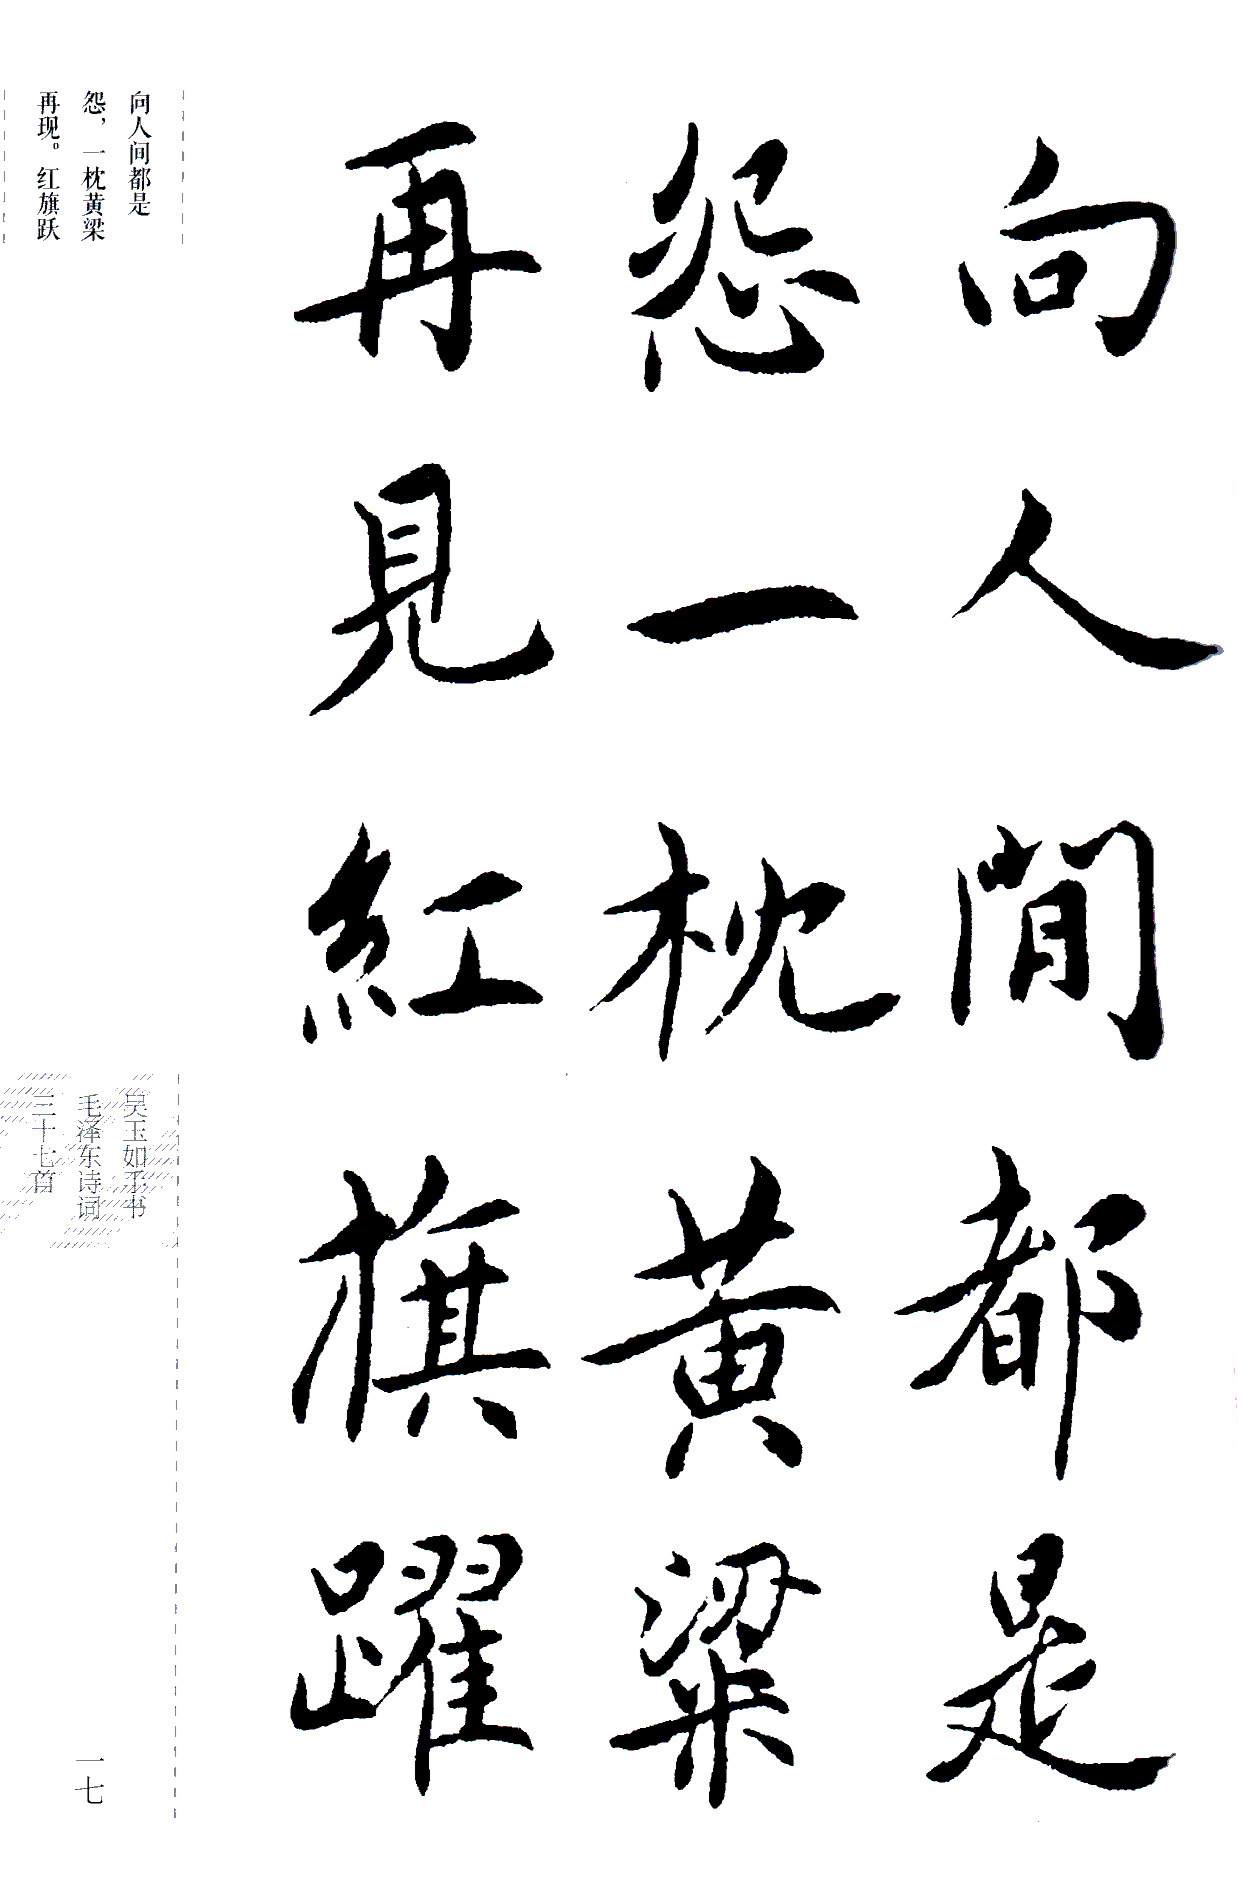 向人閒都是
怨一枕黄粱
再見紅旗躍
向人间都是
怨，一枕黄梁
再现。红旗跃
吴玉如手书
毛泽东诗词
三十七首
一七